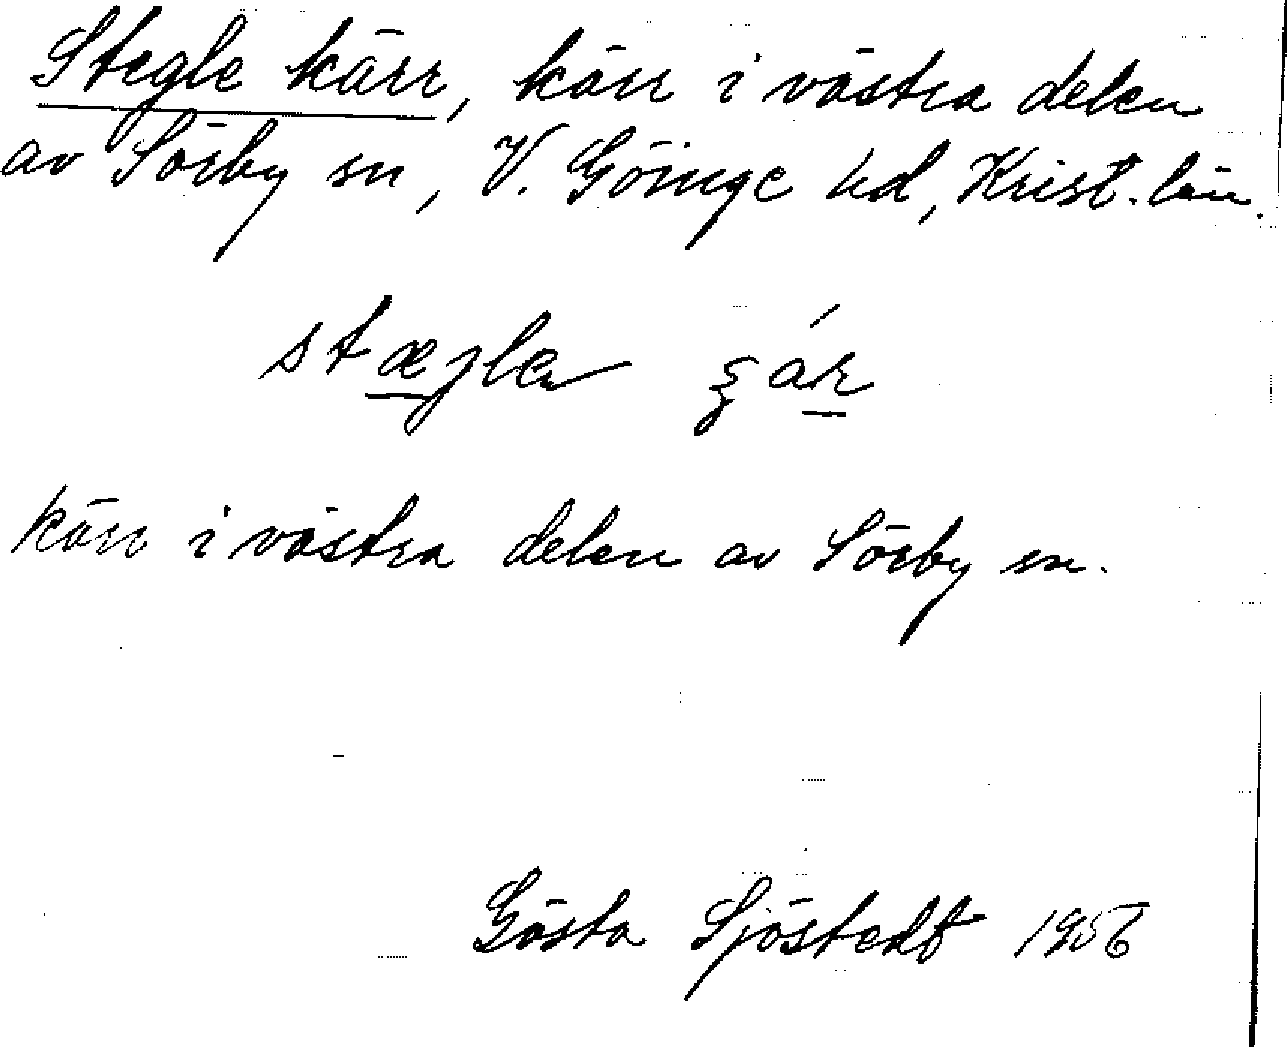 Stegle kärr, kärr i västra delen
av Sörby sn, V. Göinge hd, Krist. län.
kärr i västra delen av Sörby sn.
Gösta Sjöstedt 1956